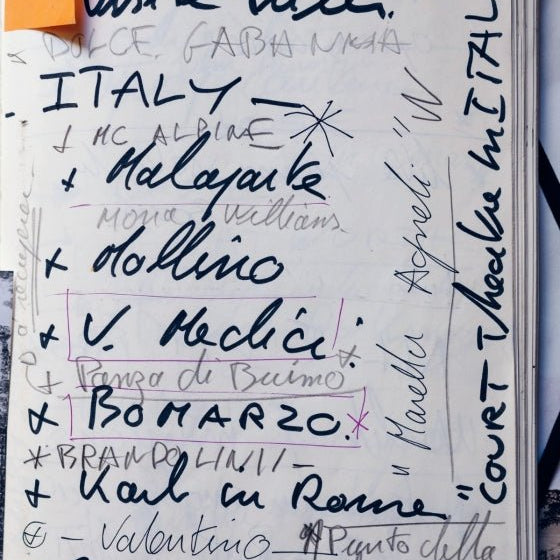 DOLCE. GABANNA
ITALY —
+ MC ALPINE
+ Malaparte
Mona Williams.
+ Mollino
+ V. Medici.
+ Panza di Buimo
+ BOMARZO.
* BRANDOLINI -
+ Karl in Rome
+ - Valentino
* Punto della
"Marella Agneli" W
"COURT Theatre in ITAL